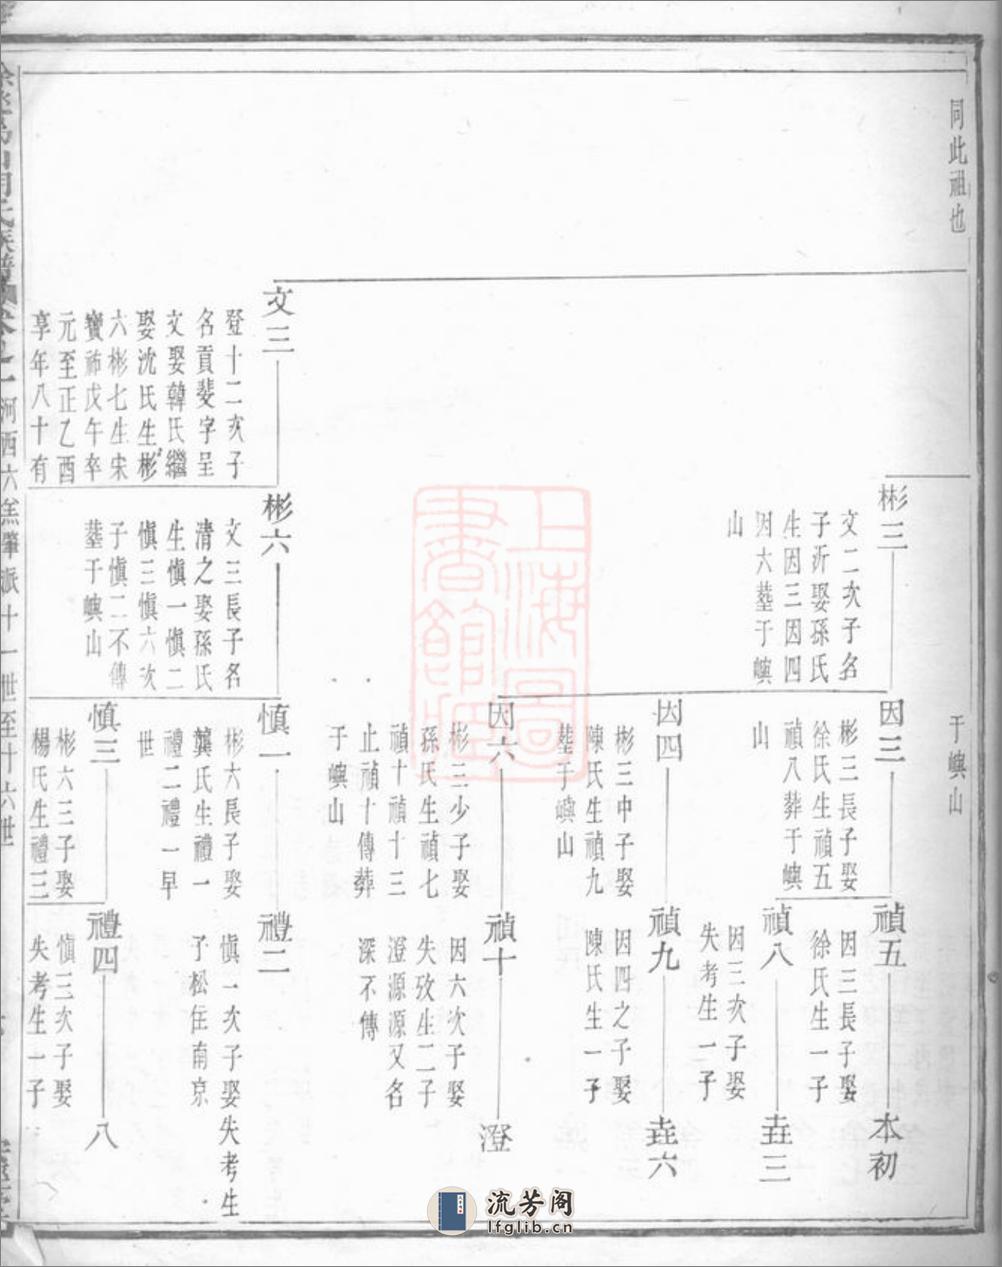 同此祖也
于嶼山
彬三
文二次子名
子沂娶孫氏
生因三因四
因六塟于嶼
山
因三
彬三長子娶
徐氏生禎五
禎八葬于嶼
山
禎五
因三長子娶
徐氏生一子
本初
禎八
因三次子娶
失考生一子
壵三
因四
彬三中子娶
陳氏生禎九
塟于嶼山
禎九
因四之子娶
陳氏生一子
壵六
因六
彬三少子娶
孫氏生禎七
禎十禎十三
止禎十傳葬
于嶼山
禎十
因六次子娶
失攷生二子
澄源源又名
深不傳
澄
文三
登十二次子
名貢斐字呈
文娶韓氏繼
娶沈氏生彬
六彬七生宋
寶祐戊午卒
元至正乙酉
享年八十有
彬六
文三長子名
清之娶孫氏
生愼一愼二
愼三愼六次
子愼二不傳
塟于嶼山
愼一
彬六長子娶
龔氏生禮一
禮二禮一早
世
禮二
愼一次子娶失考生
子松住南京
慎三
彬六三子娶
楊氏生禮三
禮四
愼三次子娶
失考生一子
八
氏族譜卷之一
河西六㷖肇派十一世至十六世
上海圖書館藏
流芳阁
lfglib.cn